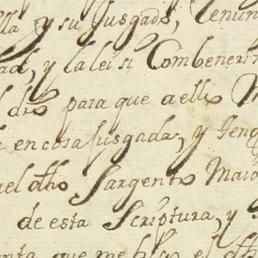 lla y su Jusgado, renun
y la lei si Combeneri
dro para que a ello
en cosa jusgada, y
el dho Sargento Maio
de esta Scriptura, y
que me hizo el dh